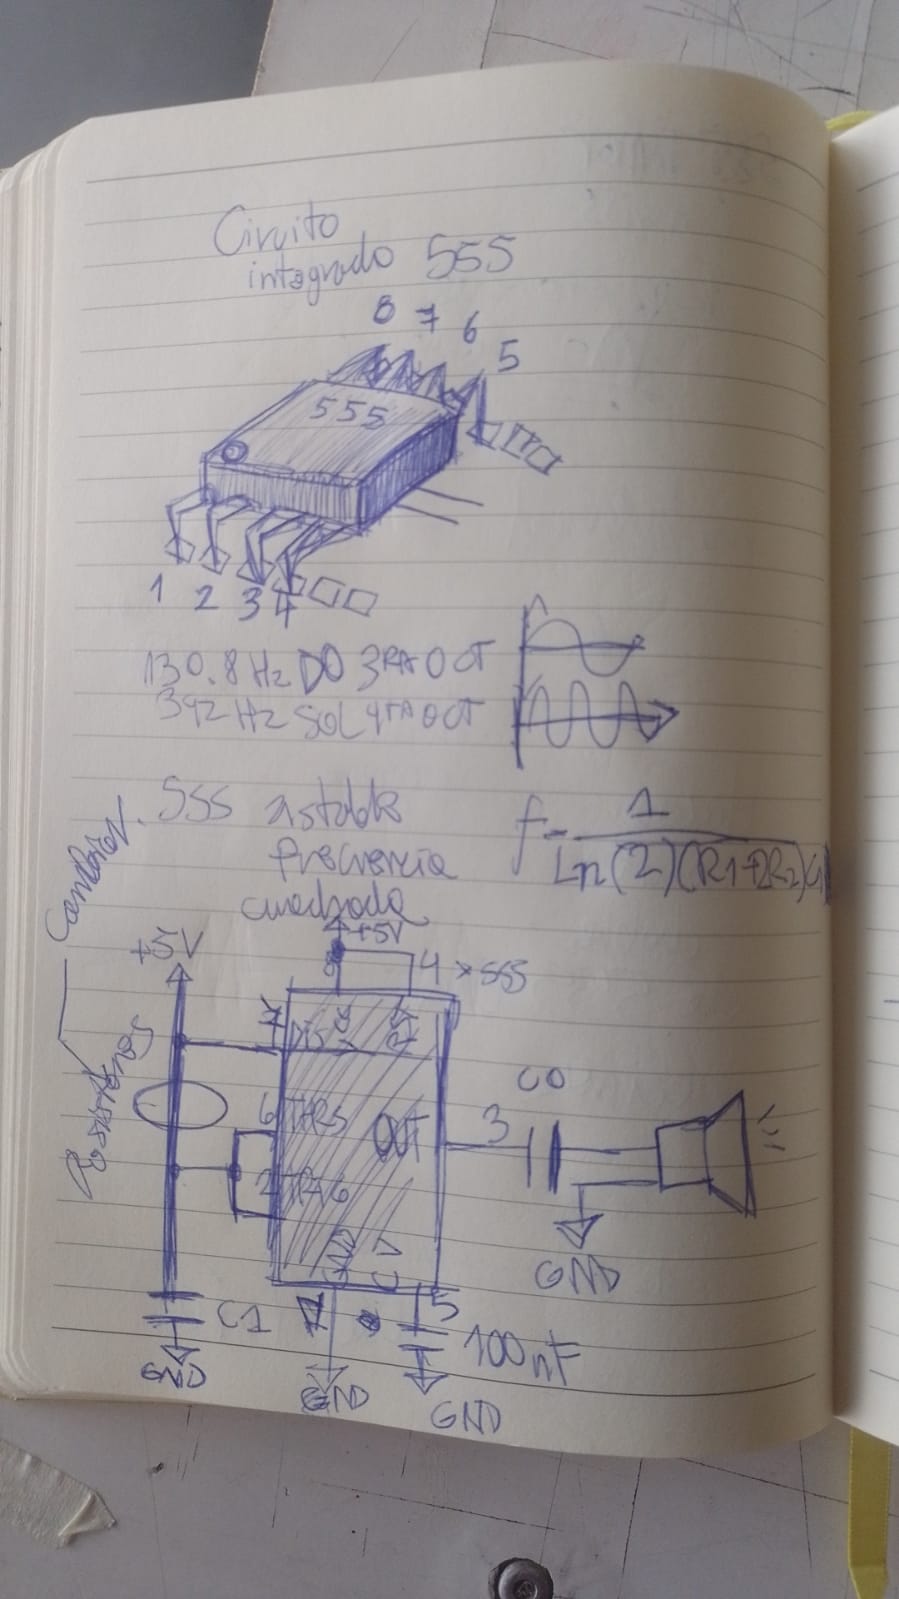 Circuito
integrado 555
8 7 6 5
555
1 2 3 4
130.8 Hz DO 3RA OCT
392 Hz SOL 4TA OCT
555 astable
frecuencia
cuadrada
f = 1
Ln(2)(R1+2R2)C1
Cambiar
Resistencias
+5V
+5V
8 4 > 555
7 DIS VCC RST
6 THRS
2 TRIG
OUT 3
C0
GND CV
GND
C1 1 5
100nF
GND
GND
GND